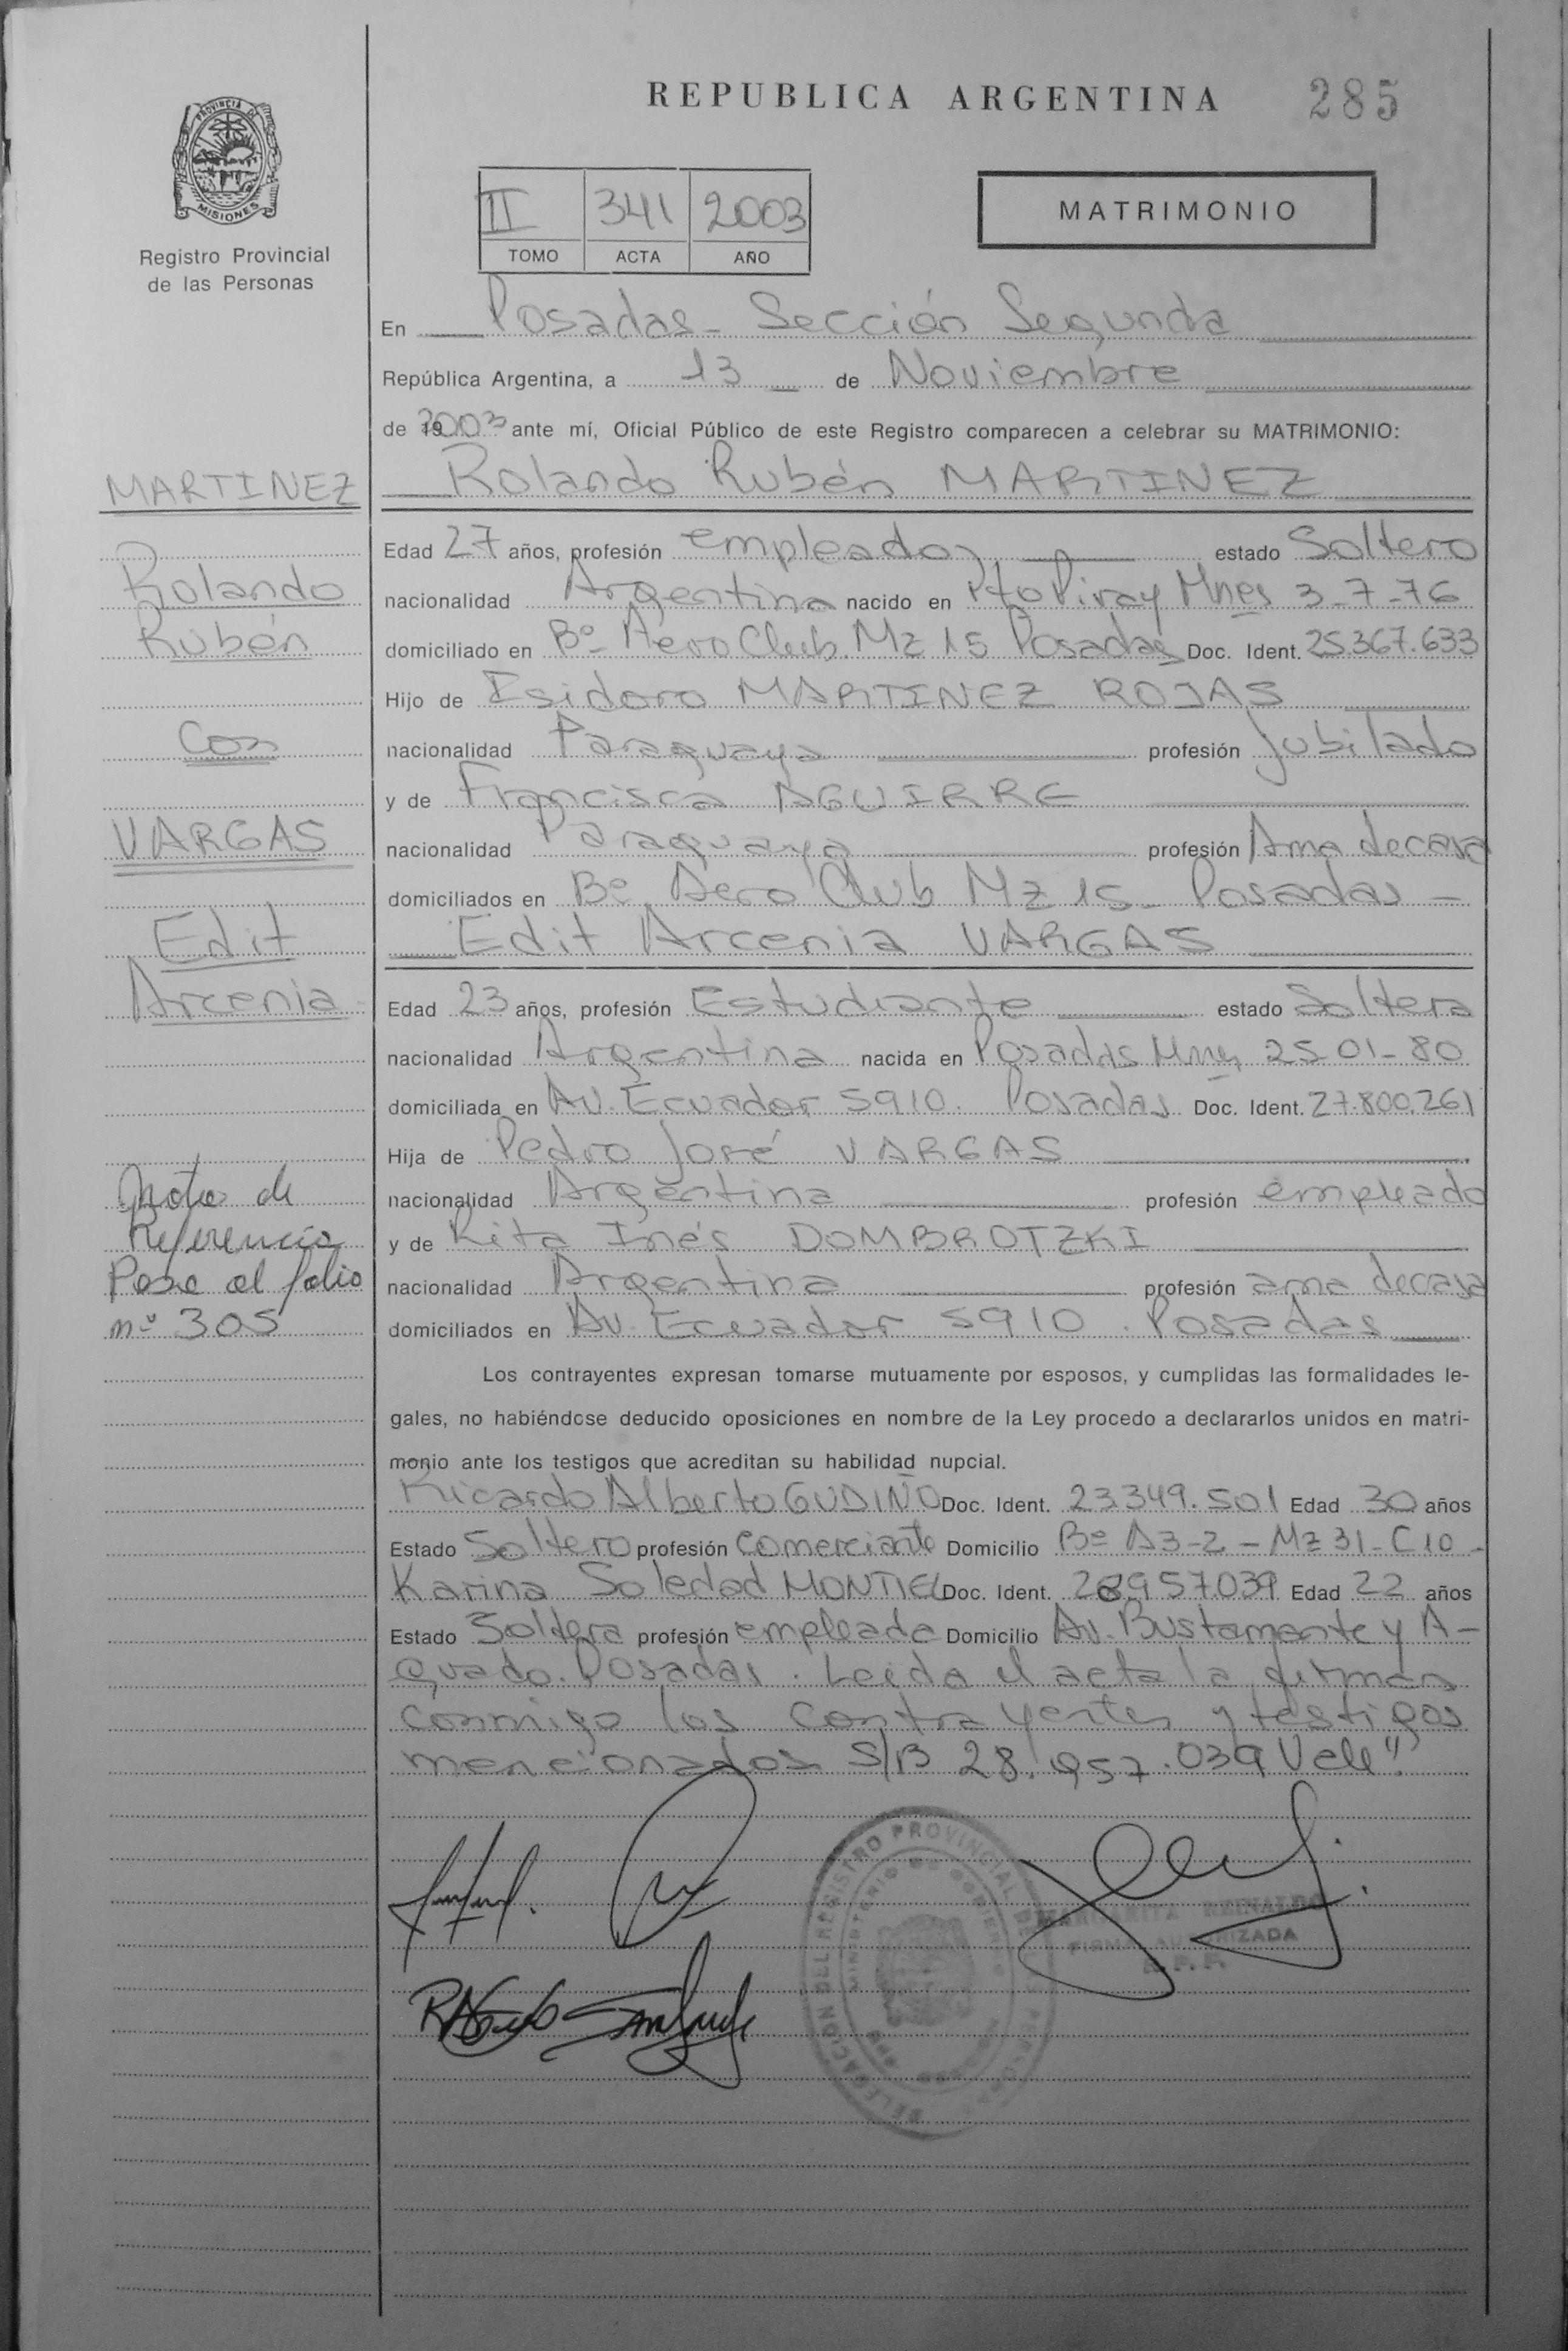 REPUBLICA ARGENTINA 285
PROVINCIA DE
MISIONES
Registro Provincial
de las Personas
II 341 2003
TOMO ACTA AÑO
MATRIMONIO
En Posadas - Sección Segunda
República Argentina, a 13 de Noviembre
de 2003 ante mí, Oficial Público de este Registro comparecen a celebrar su MATRIMONIO:
Rolando Rubén MARTINEZ
Edad 27 años, profesión empleado estado Soltero
nacionalidad Argentina nacido en Pto Piray Mnes 3-7-76
domiciliado en Bº Aero Club Mz 15 Posadas Doc. Ident. 25.367.633
Hijo de Isidoro MARTINEZ ROJAS
nacionalidad Paraguaya profesión Jubilado
y de Francisca AGUIRRE
nacionalidad Paraguaya profesión Ama de casa
domiciliados en Bº Aero Club Mz 15 - Posadas -
Edit Arcenia VARGAS
Edad 23 años, profesión Estudiante estado Soltera
nacionalidad Argentina nacida en Posadas Mnes 25-01-80
domiciliada en Av. Ecuador 5910. Posadas Doc. Ident. 27.800.261
Hija de Pedro José VARGAS
nacionalidad Argentina profesión empleado
y de Rita Inés DOMBROTZKI
nacionalidad Argentina profesión ama de casa
domiciliados en Av. Ecuador 5910. Posadas
Los contrayentes expresan tomarse mutuamente por esposos, y cumplidas las formalidades le-
gales, no habiéndose deducido oposiciones en nombre de la Ley procedo a declararlos unidos en matri-
monio ante los testigos que acreditan su habilidad nupcial.
Ricardo Alberto GUDIÑO Doc. Ident. 23349.501 Edad 30 años
Estado Soltero profesión comerciante Domicilio Bº A3-2 - Mz 31 - C 10 -
Karina Soledad MONTIEL Doc. Ident. 28957.039 Edad 22 años
Estado Soltera profesión empleada Domicilio Av. Bustamante y A-
guado. Posadas. Leida el acta la firman
conmigo los contrayentes y testigos
mencionados S/B 28.957.039 Vale".
MARTINEZ
Rolando
Rubén
Con
VARGAS
Edit
Arcenia
Nota de
Referencia
Pase al folio
nº 305
DELEGACION DEL REGISTRO PROVINCIAL DE LAS PERSONAS
MINISTERIO DE GOBIERNO
MARGARITA REINALDO
FIRMA AUTORIZADA